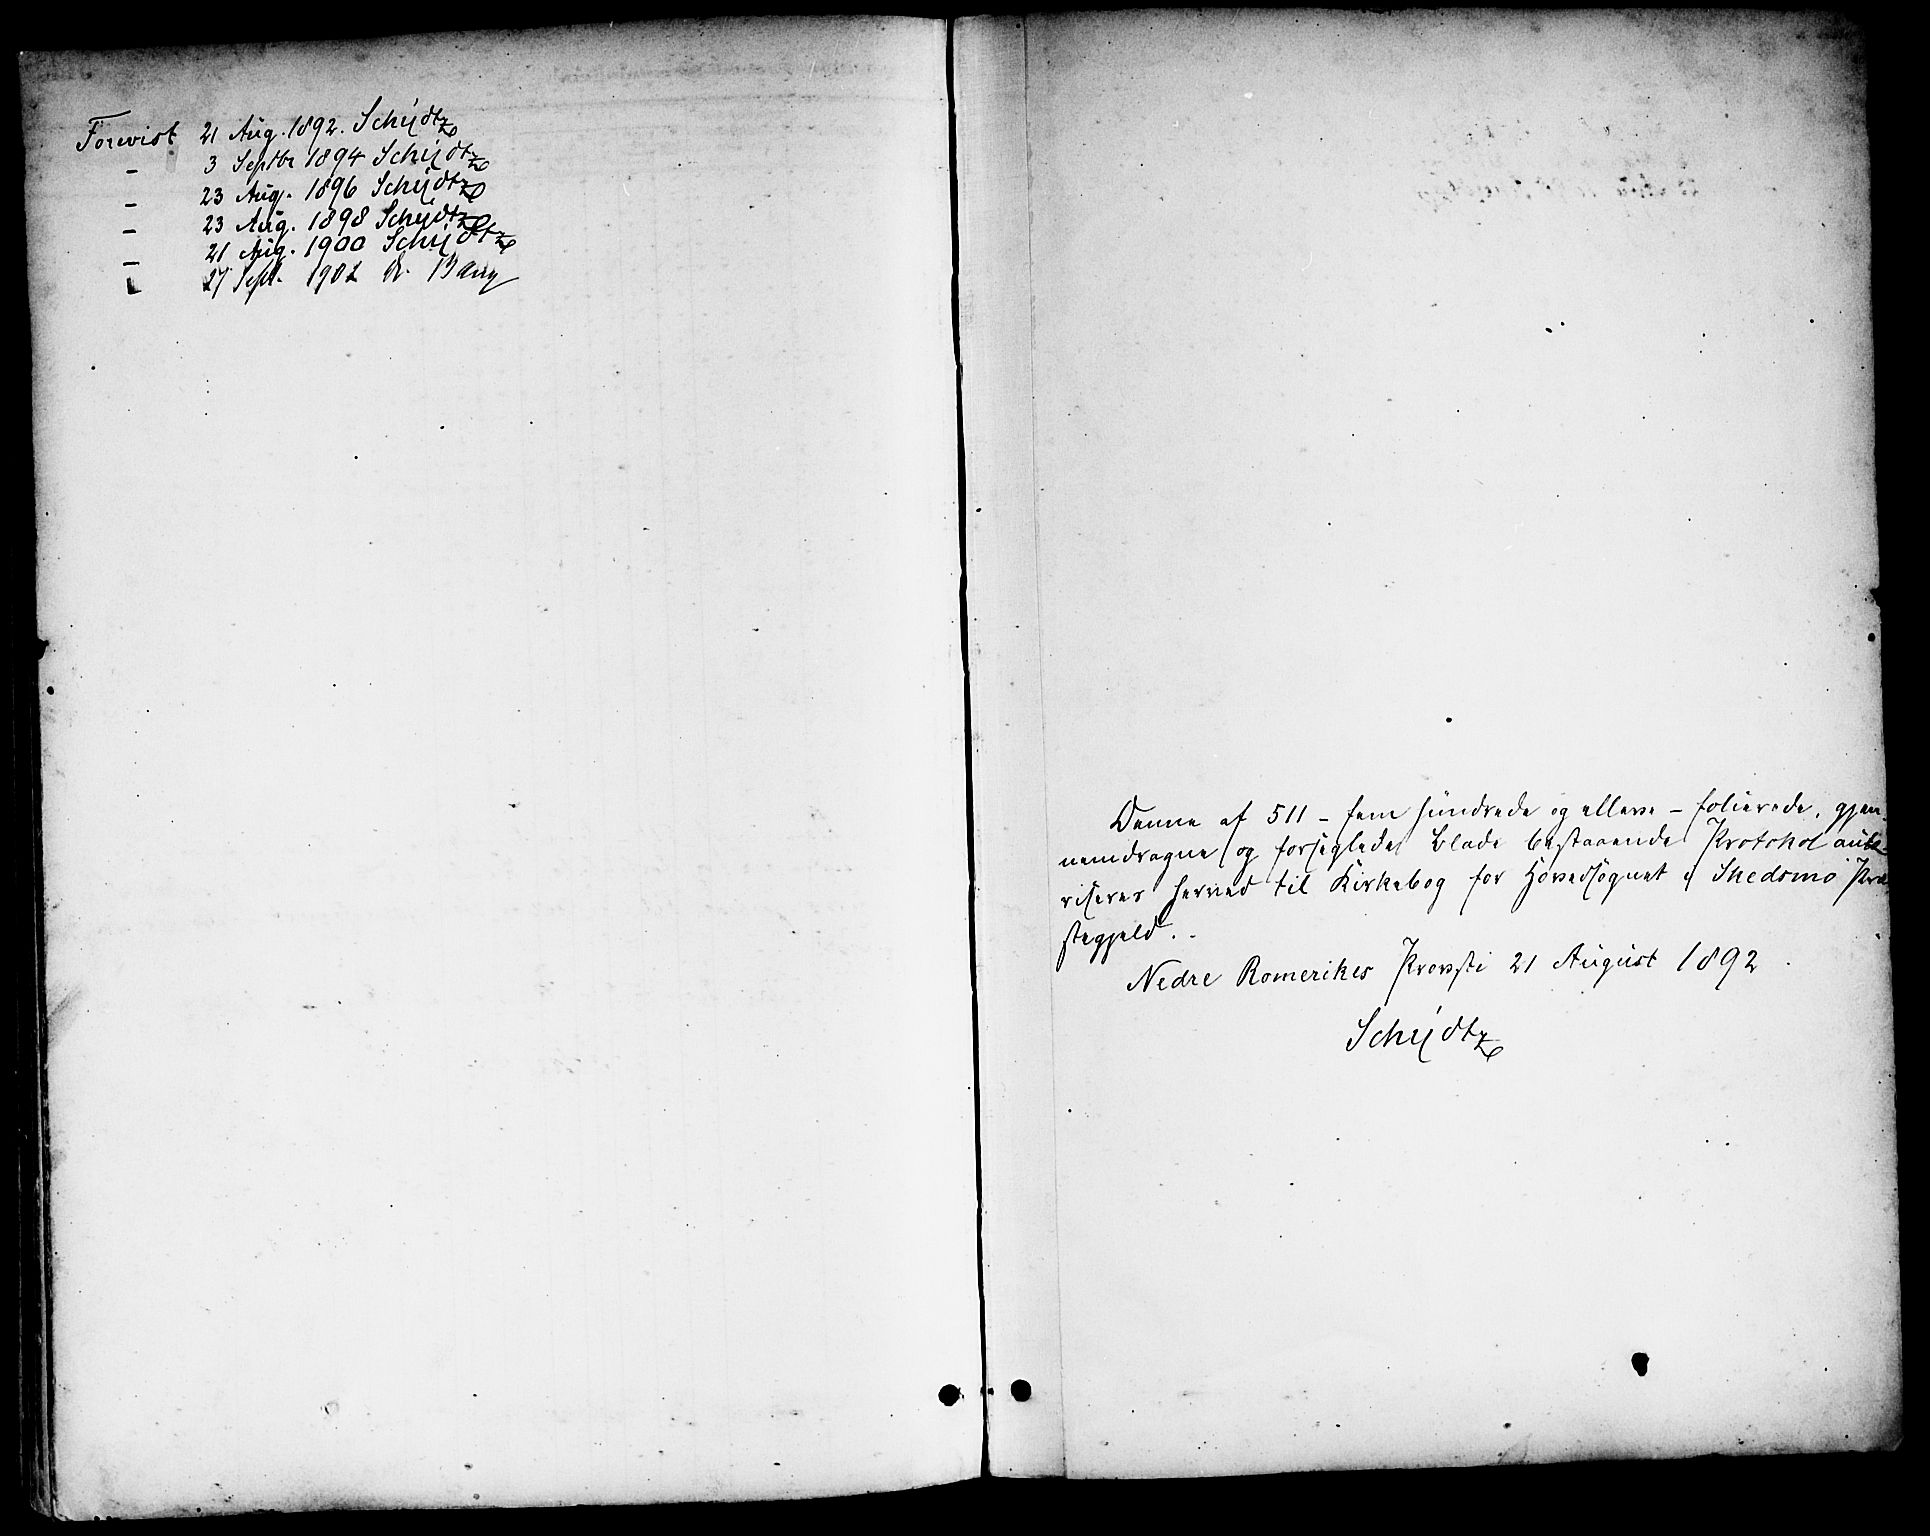 Forevist 21 Aug. 1892. Schijdtz
- 3 Septbr 1894 Schijdtz
- 23 Aug. 1896 Schijdtz
- 23 Aug. 1898 Schijdtz
- 21 Aug. 1900 Schijdtz
- 27 Sept. 1902 Bang
Denne af 511 - fem hundrede og elleve - folierede, gjen-
nemdragne og forseglede Blade bestaaende Protokol auto-
riseres herved til Kirkebog for Hovedsognet i Skedsmo Præ-
stegjeld.
Nedre Romerikes Provsti 21 August 1892
Schijdtz